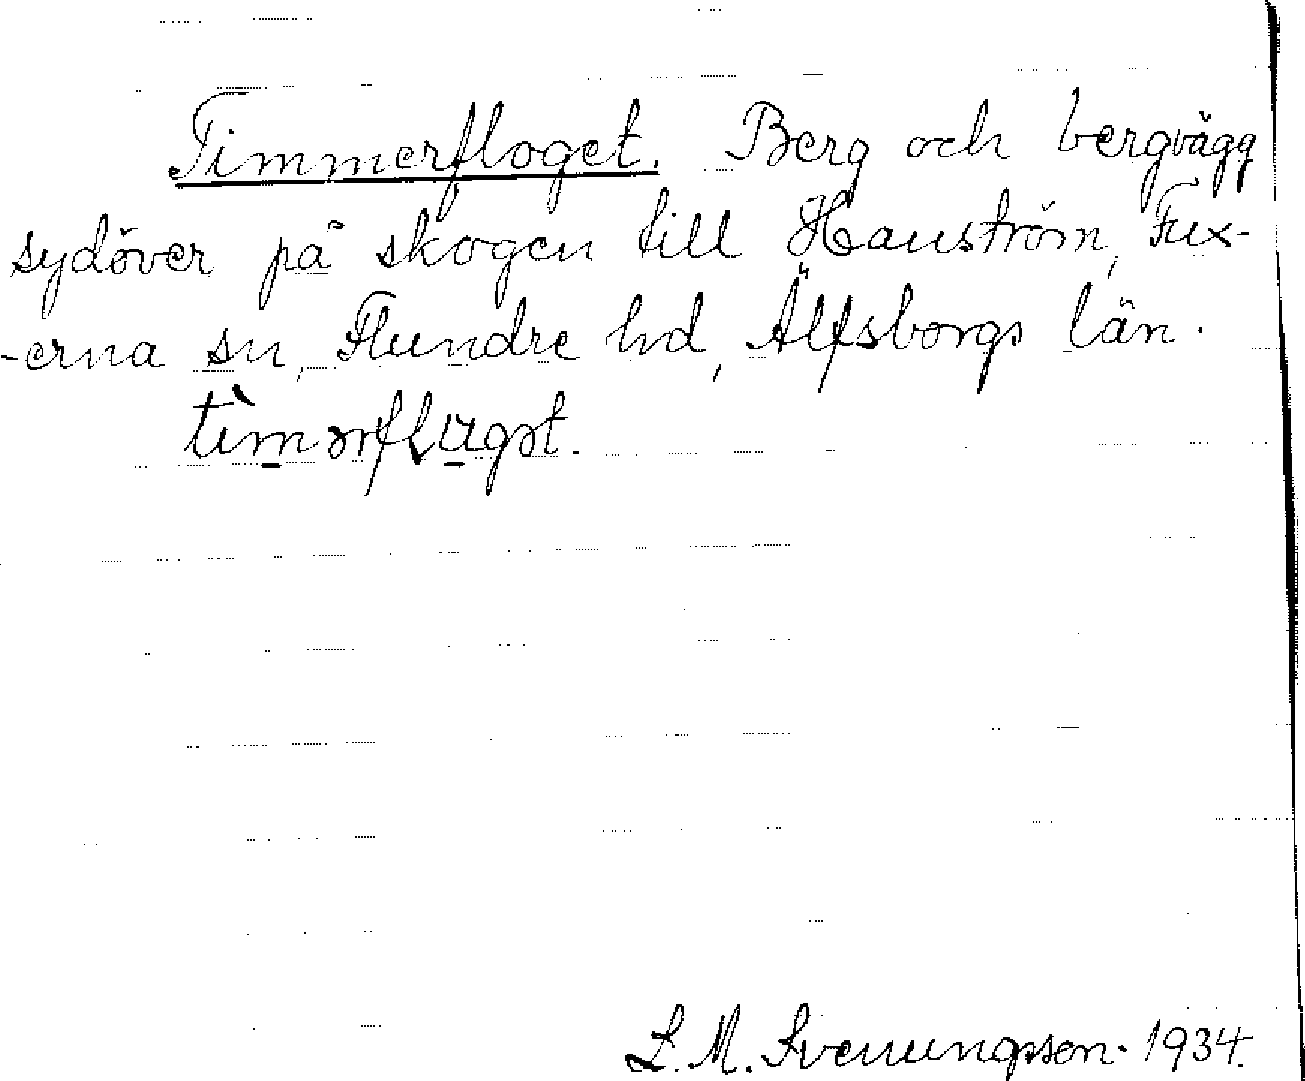 Timmerfloget. Berg och bergvägg
sydöver på skogen till Hanström, Fux-
-erna sn, Flundre hd, Älfsborgs län.
L. M. Svenungsson. 1934.